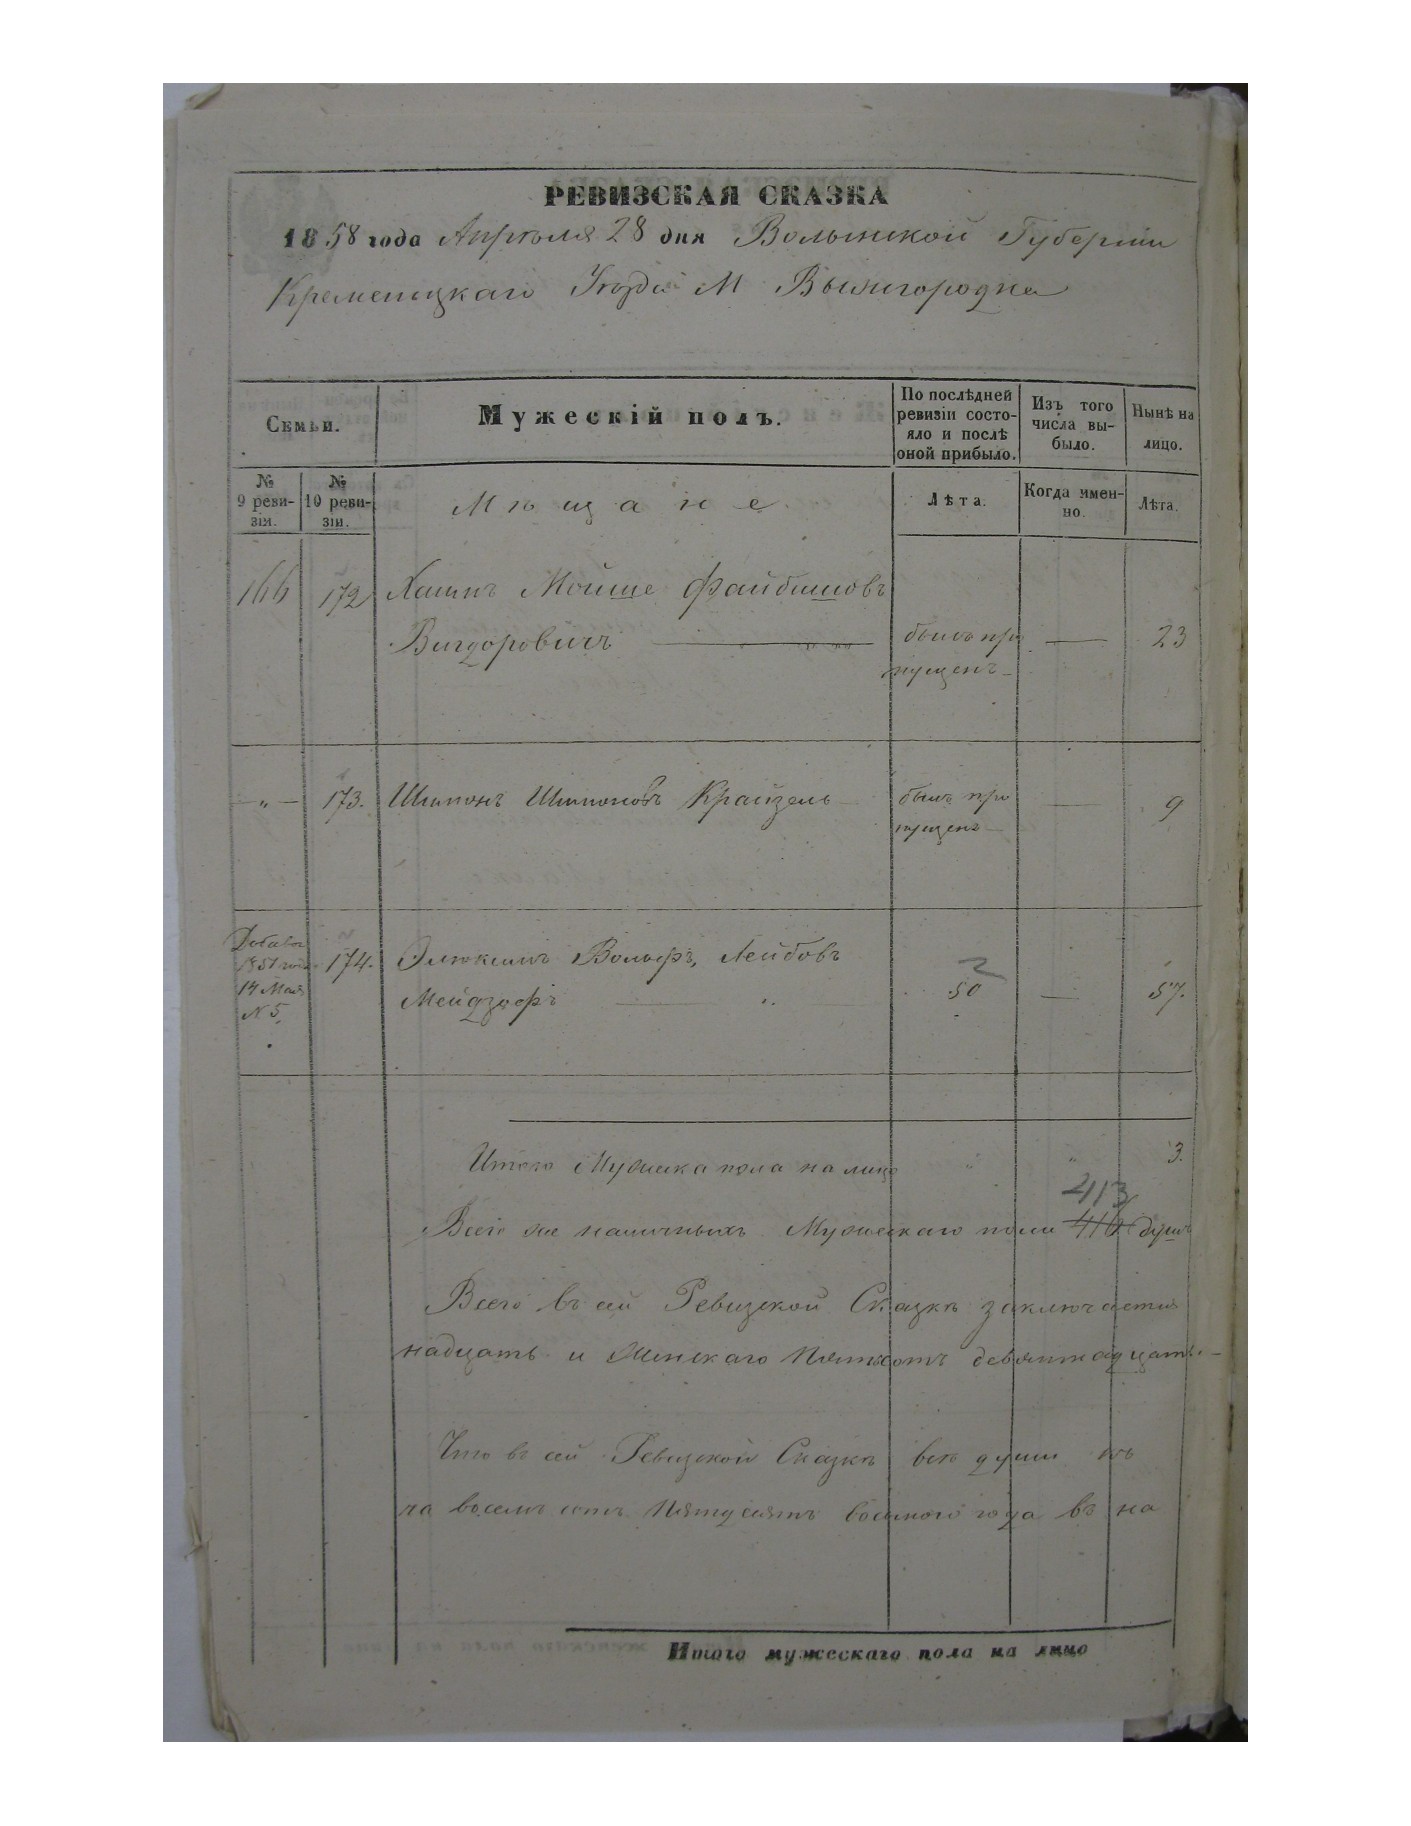 РЕВИЗСКАЯ СКАЗКА
1858 года Апрѣля 28 дня Волынской Губерніи
Кременецкаго Уѣзда М Вышгородка
Семьи.
Мужескій полъ.
По послѣдней ревизіи состояло и послѣ оной прибыло.
Изъ того числа выбыло.
Нынѣ на лицо.
№ 9 ревизіи.
№ 10 ревизіи.
Мѣщане
Лѣта.
Когда именно.
Лѣта.
166 172 Хаимъ Мойше Файбишовъ
Вигдоровичъ — былъ про — 23
пущенъ
— „ — 173. Шимонъ Шимоновъ Крайзель былъ про — 9
пущенъ
Добавоч
1851 года 174. Вольфъ, Лейбовъ
14 Мая Мейдзофъ — „ 50 — 57.
N 5.
Итого Мужеска пола на лицо „ „ 3.
413
Всего же наличныхъ Мужескаго пола душъ
Всего въ сей Ревизской Сказкѣ заключается
надцать и Женскаго Пятьсотъ девятнадцать. —
Что въ сей Ревизской Сказкѣ всѣ души къ
ча восемь сотъ Пятдесятъ восьмого года въ на
Итого мужескаго пола на лицо